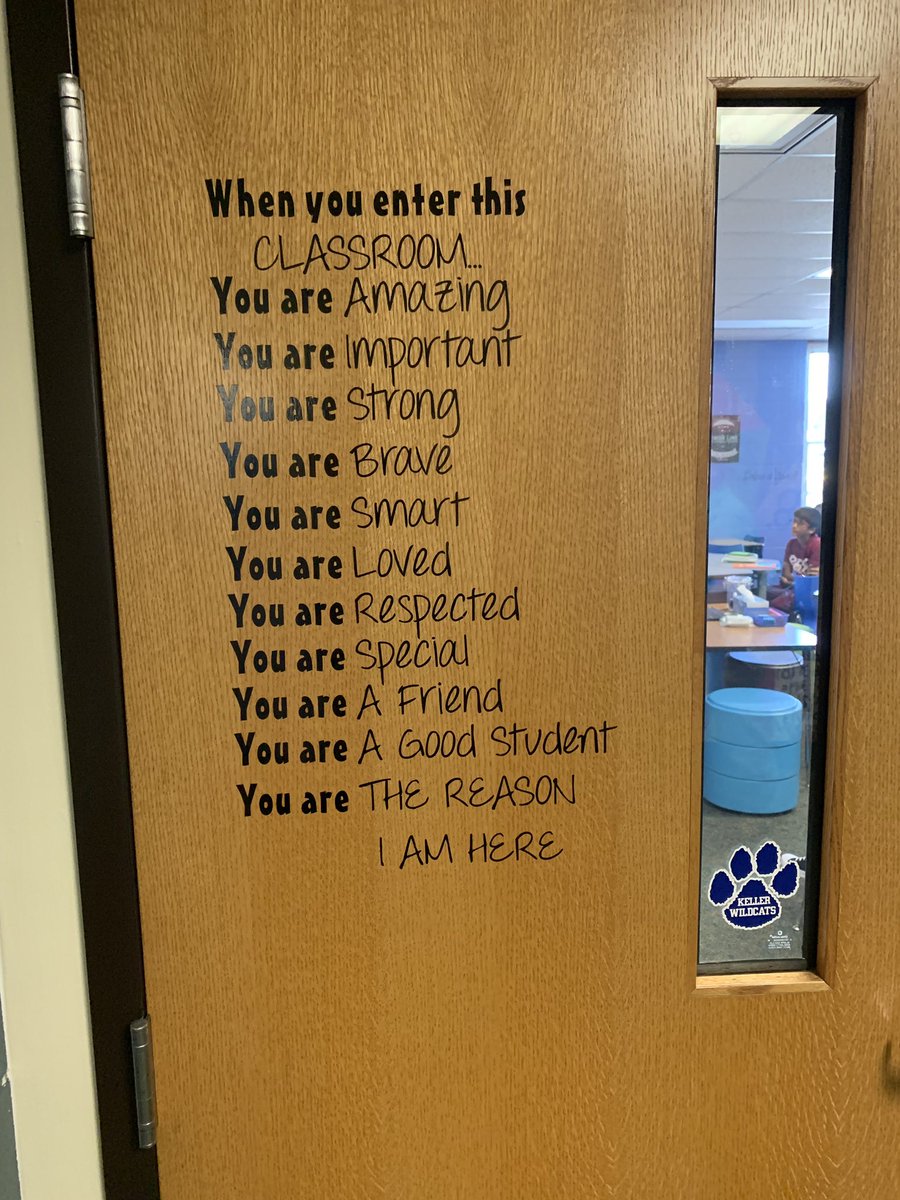 When you enter this
CLASSROOM...
You are Amazing
You are Important
You are Strong
You are Brave
You are Smart
You are Loved
You are Respected
You are Special
You are A Friend
You are A Good Student
You are THE REASON
I AM HERE
KELLER
WILDCATS